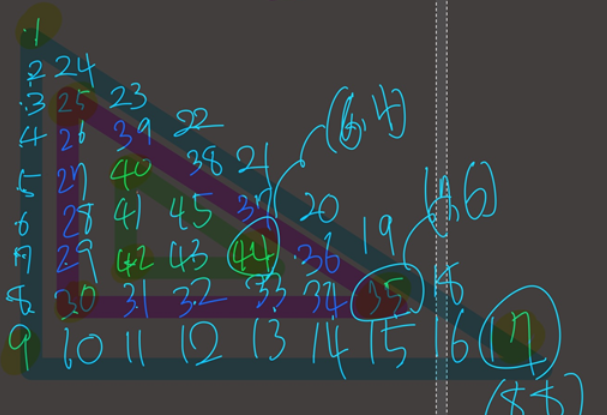 1
2 24
3 25 23
4 26 39 22
5 27 40 38 21
6 28 41 45 37 20
7 29 42 43 44 36 19
8 30 31 32 33 34 35 18
9 10 11 12 13 14 15 16 17
(6,4)
(7,6)
(8,8)